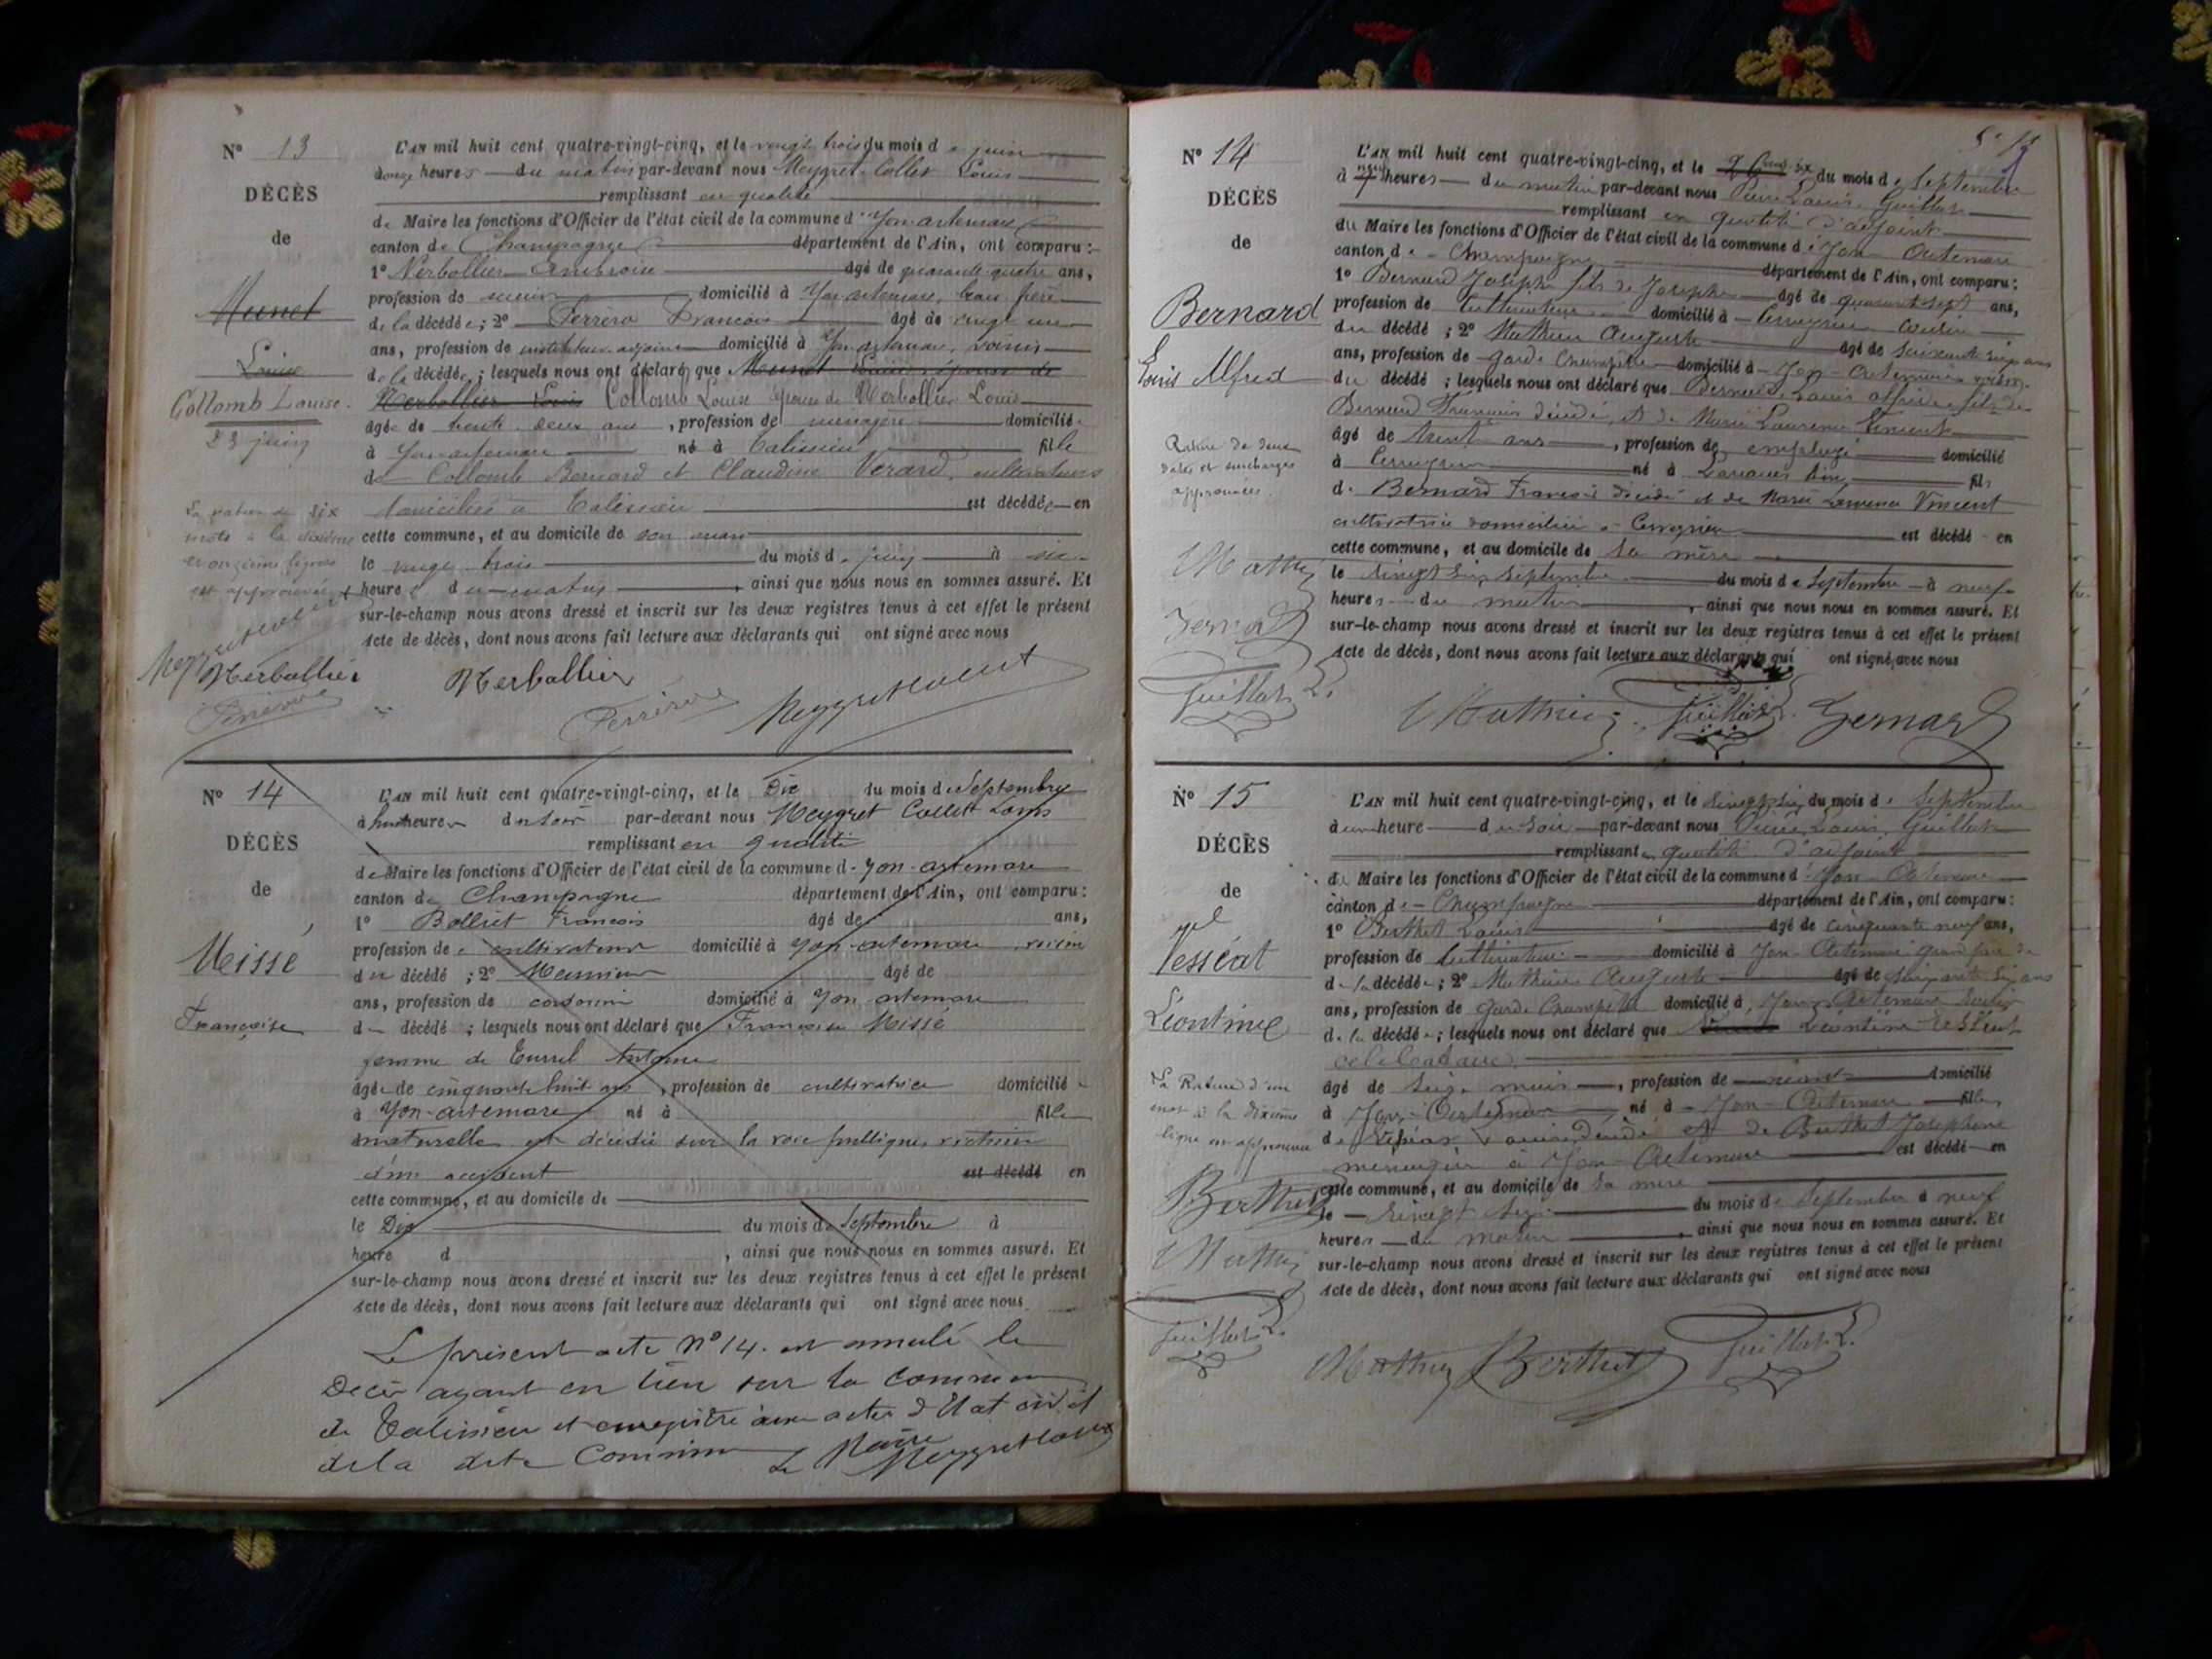 N° 13
DÉCÈS
de
Munet
Louise
Collomb Louise.
23 juin
La rature de six
mots à la dixième
et onzième lignes
est approuvée
Nerbollier
L'AN mil huit cent quatre-vingt-cinq, et le vingt trois du mois de juin
heures du matin par-devant nous Meygret-Collet Louis
remplissant en qualité
de Maire les fonctions d'Officier de l'état civil de la commune d'Yon artemare
canton de Champagne département de l'Ain, ont comparu :
1° Nerbollier Ambroise âgé de quarante quatre ans,
profession de domicilié à Yon artemare, beau frère
de la décédée ; 2° Ferrero François âgé de vingt un
ans, profession de instituteur adjoint domicilié à Yon artemare, voisin
de la décédée ; lesquels nous ont déclaré que Munet Louise épouse de
Nerbollier Louis Collomb Louise épouse de Nerbollier Louis
âgée de trente deux ans, profession de ménagère domiciliée
à Yon artemare né à Talissieu fille
de Collomb Bernard et Claudine Verard, cultivateurs
domiciliés à Talissieu est décédée en
cette commune, et au domicile de son mari
le vingt trois du mois de juin à six
heures du matin, ainsi que nous nous en sommes assuré. Et
sur-le-champ nous avons dressé et inscrit sur les deux registres tenus à cet effet le présent
Acte de décès, dont nous avons fait lecture aux déclarants qui ont signé avec nous
Nerbollier
N° 14
DÉCÈS
de
Missé
Françoise
L'AN mil huit cent quatre-vingt-cinq, et le Dix du mois de Septembre
à huit heures du soir par-devant nous Meygret Collet Louis
remplissant en qualité
de Maire les fonctions d'Officier de l'état civil de la commune d'Yon-artemare
canton de Champagne département de l'Ain, ont comparu :
1° Bolliet François âgé de ans,
profession de cultivateur domicilié à Yon-artemare voisin
du décédé ; 2° Meunier âgé de
ans, profession de domicilié à Yon-artemare
du décédé ; lesquels nous ont déclaré que Françoise Missé
femme de Antoine
âgée de cinquante huit ans, profession de cultivatrice domiciliée
à Yon-artemare né à fille
naturelle est décédée sur la voie publique, victime
d'un accident est décédé en
cette commune, et au domicile de
le Dix du mois de Septembre à
heure d , ainsi que nous nous en sommes assuré. Et
sur-le-champ nous avons dressé et inscrit sur les deux registres tenus à cet effet le présent
Acte de décès, dont nous avons fait lecture aux déclarants qui ont signé avec nous
Le présent acte N° 14. est annulé le
Décès ayant eu lieu sur la commune
de Talissieu et enregistré aux actes d'Etat civil
de la dite Commune Le Maire
N° 14
DÉCÈS
de
Bernard
Louis Alfred
Rature de deux
dates et surcharges
approuvées.
L'AN mil huit cent quatre-vingt-cinq, et le du mois de Septembre
à heures du matin par-devant nous Pierre Louis Guillot
remplissant en qualité d'adjoint
du Maire les fonctions d'Officier de l'état civil de la commune d'Yon-Artemare
canton de Champagne département de l'Ain, ont comparu :
1° Bernard Joseph fils de Joseph âgé de quarante sept ans,
profession de Cultivateur domicilié à Cerveyrieu cousin
du décédé ; 2° Mathieu Auguste âgé de soixante six ans
ans, profession de garde Champêtre domicilié à Yon-Artemare voisin
du décédé ; lesquels nous ont déclaré que Bernard Louis Alfred fils de
Bernard François décédé et de Marie Laurence Vincent
âgé de trente ans, profession de employé domicilié
à Cerveyrieu né à Ain, fils
de Bernard François décédé et de Marie Laurence Vincent
cultivatrice domiciliée à Cerveyrieu est décédé en
cette commune, et au domicile de sa mère
le vingt six septembre du mois de Septembre à neuf
heures du matin, ainsi que nous nous en sommes assuré. Et
sur-le-champ nous avons dressé et inscrit sur les deux registres tenus à cet effet le présent
Acte de décès, dont nous avons fait lecture aux déclarants qui ont signé avec nous
Mathieu Guillot L. Bernard
N° 15
DÉCÈS
de
Vesséat
Léontine
La Rature d'un
mot à la dixième
ligne est approuvée
Berthet
Mathieu
Guillot L.
L'AN mil huit cent quatre-vingt-cinq, et le vingt six du mois de Septembre
à une heure du soir par-devant nous Pierre Louis Guillot
remplissant en qualité d'adjoint
du Maire les fonctions d'Officier de l'état civil de la commune d'Yon-Artemare
canton de Champagne département de l'Ain, ont comparu :
1° Berthet Louis âgé de cinquante neuf ans,
profession de Cultivateur domicilié à Yon-Artemare grand père de
de la décédée ; 2° Mathieu Auguste âgé de soixante six ans
ans, profession de garde Champêtre domicilié à Yon-Artemare
de la décédée ; lesquels nous ont déclaré que Léontine
célibataire
âgé de seize mois, profession de domicilié
à Yon-Artemare né à Yon-Artemare fille
de Louis décédé et de Berthet Josephine
ménagère à Yon-Artemare est décédé en
cette commune, et au domicile de sa mère
le vingt six du mois de Septembre à neuf
heures du matin, ainsi que nous nous en sommes assuré. Et
sur-le-champ nous avons dressé et inscrit sur les deux registres tenus à cet effet le présent
Acte de décès, dont nous avons fait lecture aux déclarants qui ont signé avec nous
Mathieu Berthet Guillot L.